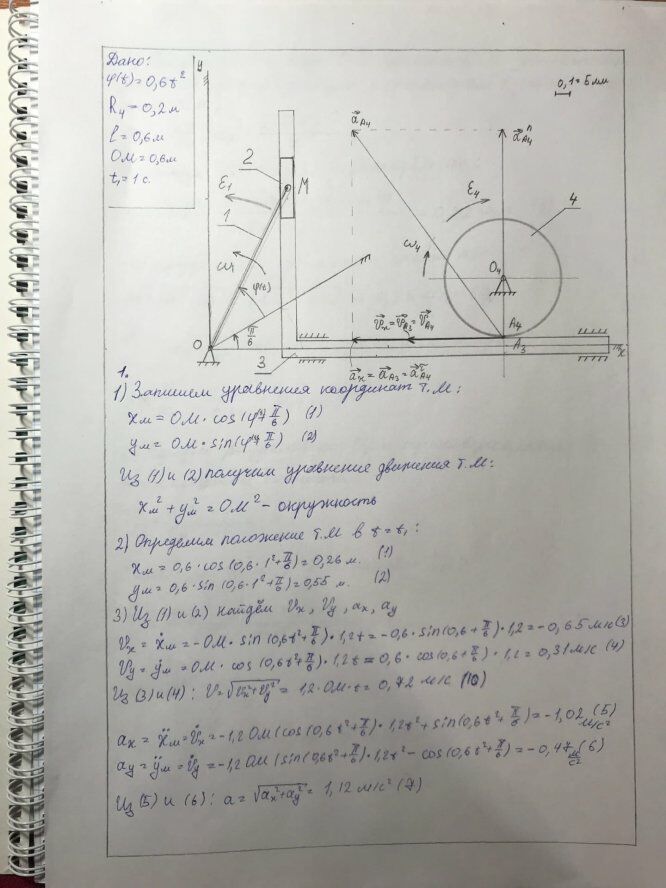 Дано:
φ(t)=0,6t²
R₄=0,2м
l=0,6м
OM=0,6м
t₁=1 с.
y
0,1=5мм
a⃗A₄
a⃗ⁿA₄
2
M
ε₁
1
ω₁
φ(t)
π/6
O
3
ε₄
4
ω₄
O₄
A₄
A₃
x
v⃗x=v⃗A₃=v⃗A₄
a⃗x=a⃗A₃=a⃗τA₄
1.
1) Запишем уравнения координат т.М:
xм=OM·cos(φ(t)+π/6) (1)
yм=OM·sin(φ(t)+π/6) (2)
Из (1) и (2) получим уравнение движения т.М:
xм²+yм²=OM² - окружность
2) Определим положение т.М в t=t₁:
xм=0,6·cos(0,6·1²+π/6)=0,26 м. (1)
yм=0,6·sin(0,6·1²+π/6)=0,55 м. (2)
3) Из (1) и (2) найдём Vx, Vy, ax, ay
Vx=ẋм=-OM·sin(0,6t²+π/6)·1,2t=-0,6·sin(0,6+π/6)·1,2=-0,65м/с(3)
Vy=ẏм=OM·cos(0,6t²+π/6)·1,2t=0,6·cos(0,6+π/6)·1,2=0,31м/с (4)
Из (3) и (4): V=√Vx²+Vy²=1,2·OM·t=0,72 м/с (10)
ax=ẍм=V̇x=-1,2OM(cos(0,6t²+π/6)·1,2t²+sin(0,6t²+π/6)=-1,02 м/с² (5)
ay=ÿм=V̇y=-1,2OM(sin(0,6t²+π/6)·1,2t²-cos(0,6t²+π/6)=-0,47 м/с² (6)
Из (5) и (6): a=√ax²+ay²=1,12м/с² (7)